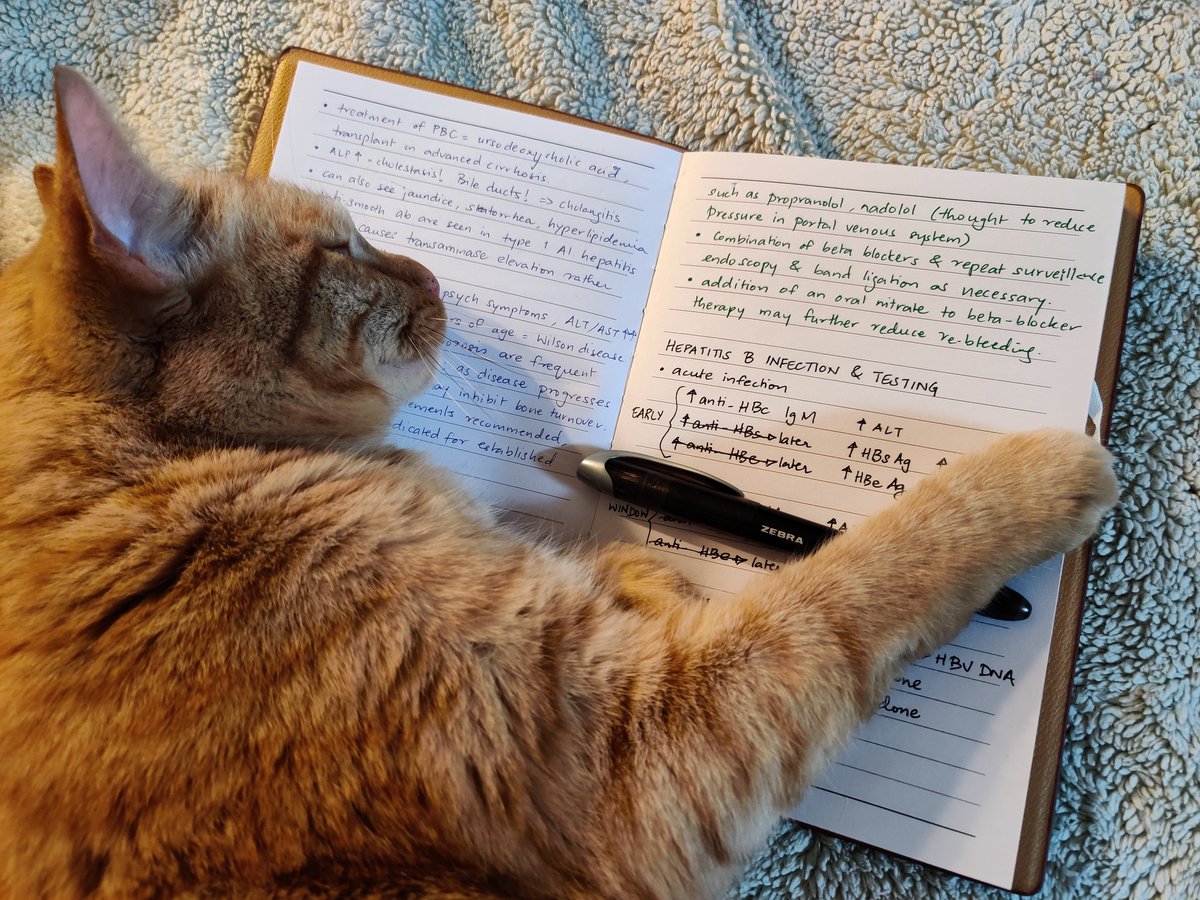 • treatment of PBC = ursodeoxycholic acid,
transplant in advanced cirrhosis.
• ALP ↑ = cholestasis! Bile ducts! => cholangitis
• can also see jaundice, statorrhea, hyperlipidemia
smooth ab are seen in type 1 AI hepatitis
causes transaminase elevation rather
psych symptoms, ALT/AST ↑↑
of age = Wilson disease
are frequent
as disease progresses
inhibit bone turnover.
recommended
for established
such as propranolol, nadolol (thought to reduce
pressure in portal venous system)
• Combination of beta blockers & repeat surveillence
endoscopy & band ligation as necessary.
• addition of an oral nitrate to beta-blocker
therapy may further reduce re-bleeding.
HEPATITIS B INFECTION & TESTING
• acute infection
EARLY
↑ anti-HBc IgM ↑ ALT
↑ anti-HBs → later ↑ HBs Ag
↑ anti-HBe → later ↑ HBe Ag
ZEBRA
WINDOW
anti-HBe → later
HBV DNA